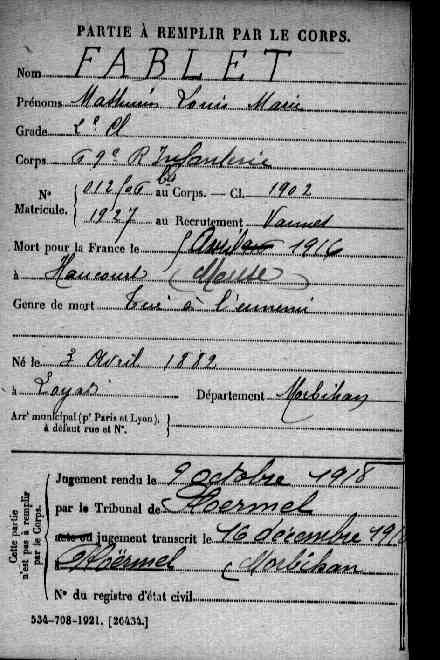 PARTIE À REMPLIR PAR LE CORPS.
Nom FABLET
Prénoms Mathurin Louis Marie
Grade 2e Cl
Corps 9e R Infanterie
Nº au Corps. — Cl. 1902
Matricule. 1927 au Recrutement Vannes
Mort pour la France le 5 Avril 1916
à Haucourt (Meuse)
Genre de mort Tué à l'ennemi
Né le 3 Avril 1882
à Loyat Département Morbihan
Arrt municipal (pr Paris et Lyon),
à défaut rue et Nº.
Cette partie n'est pas à remplir par le Corps.
Jugement rendu le 9 octobre 1918
par le Tribunal de Ploermel
acte ou jugement transcrit le 16 décembre
Ploërmel Morbihan
Nº du registre d'état civil
534-708-1921. [26434.]